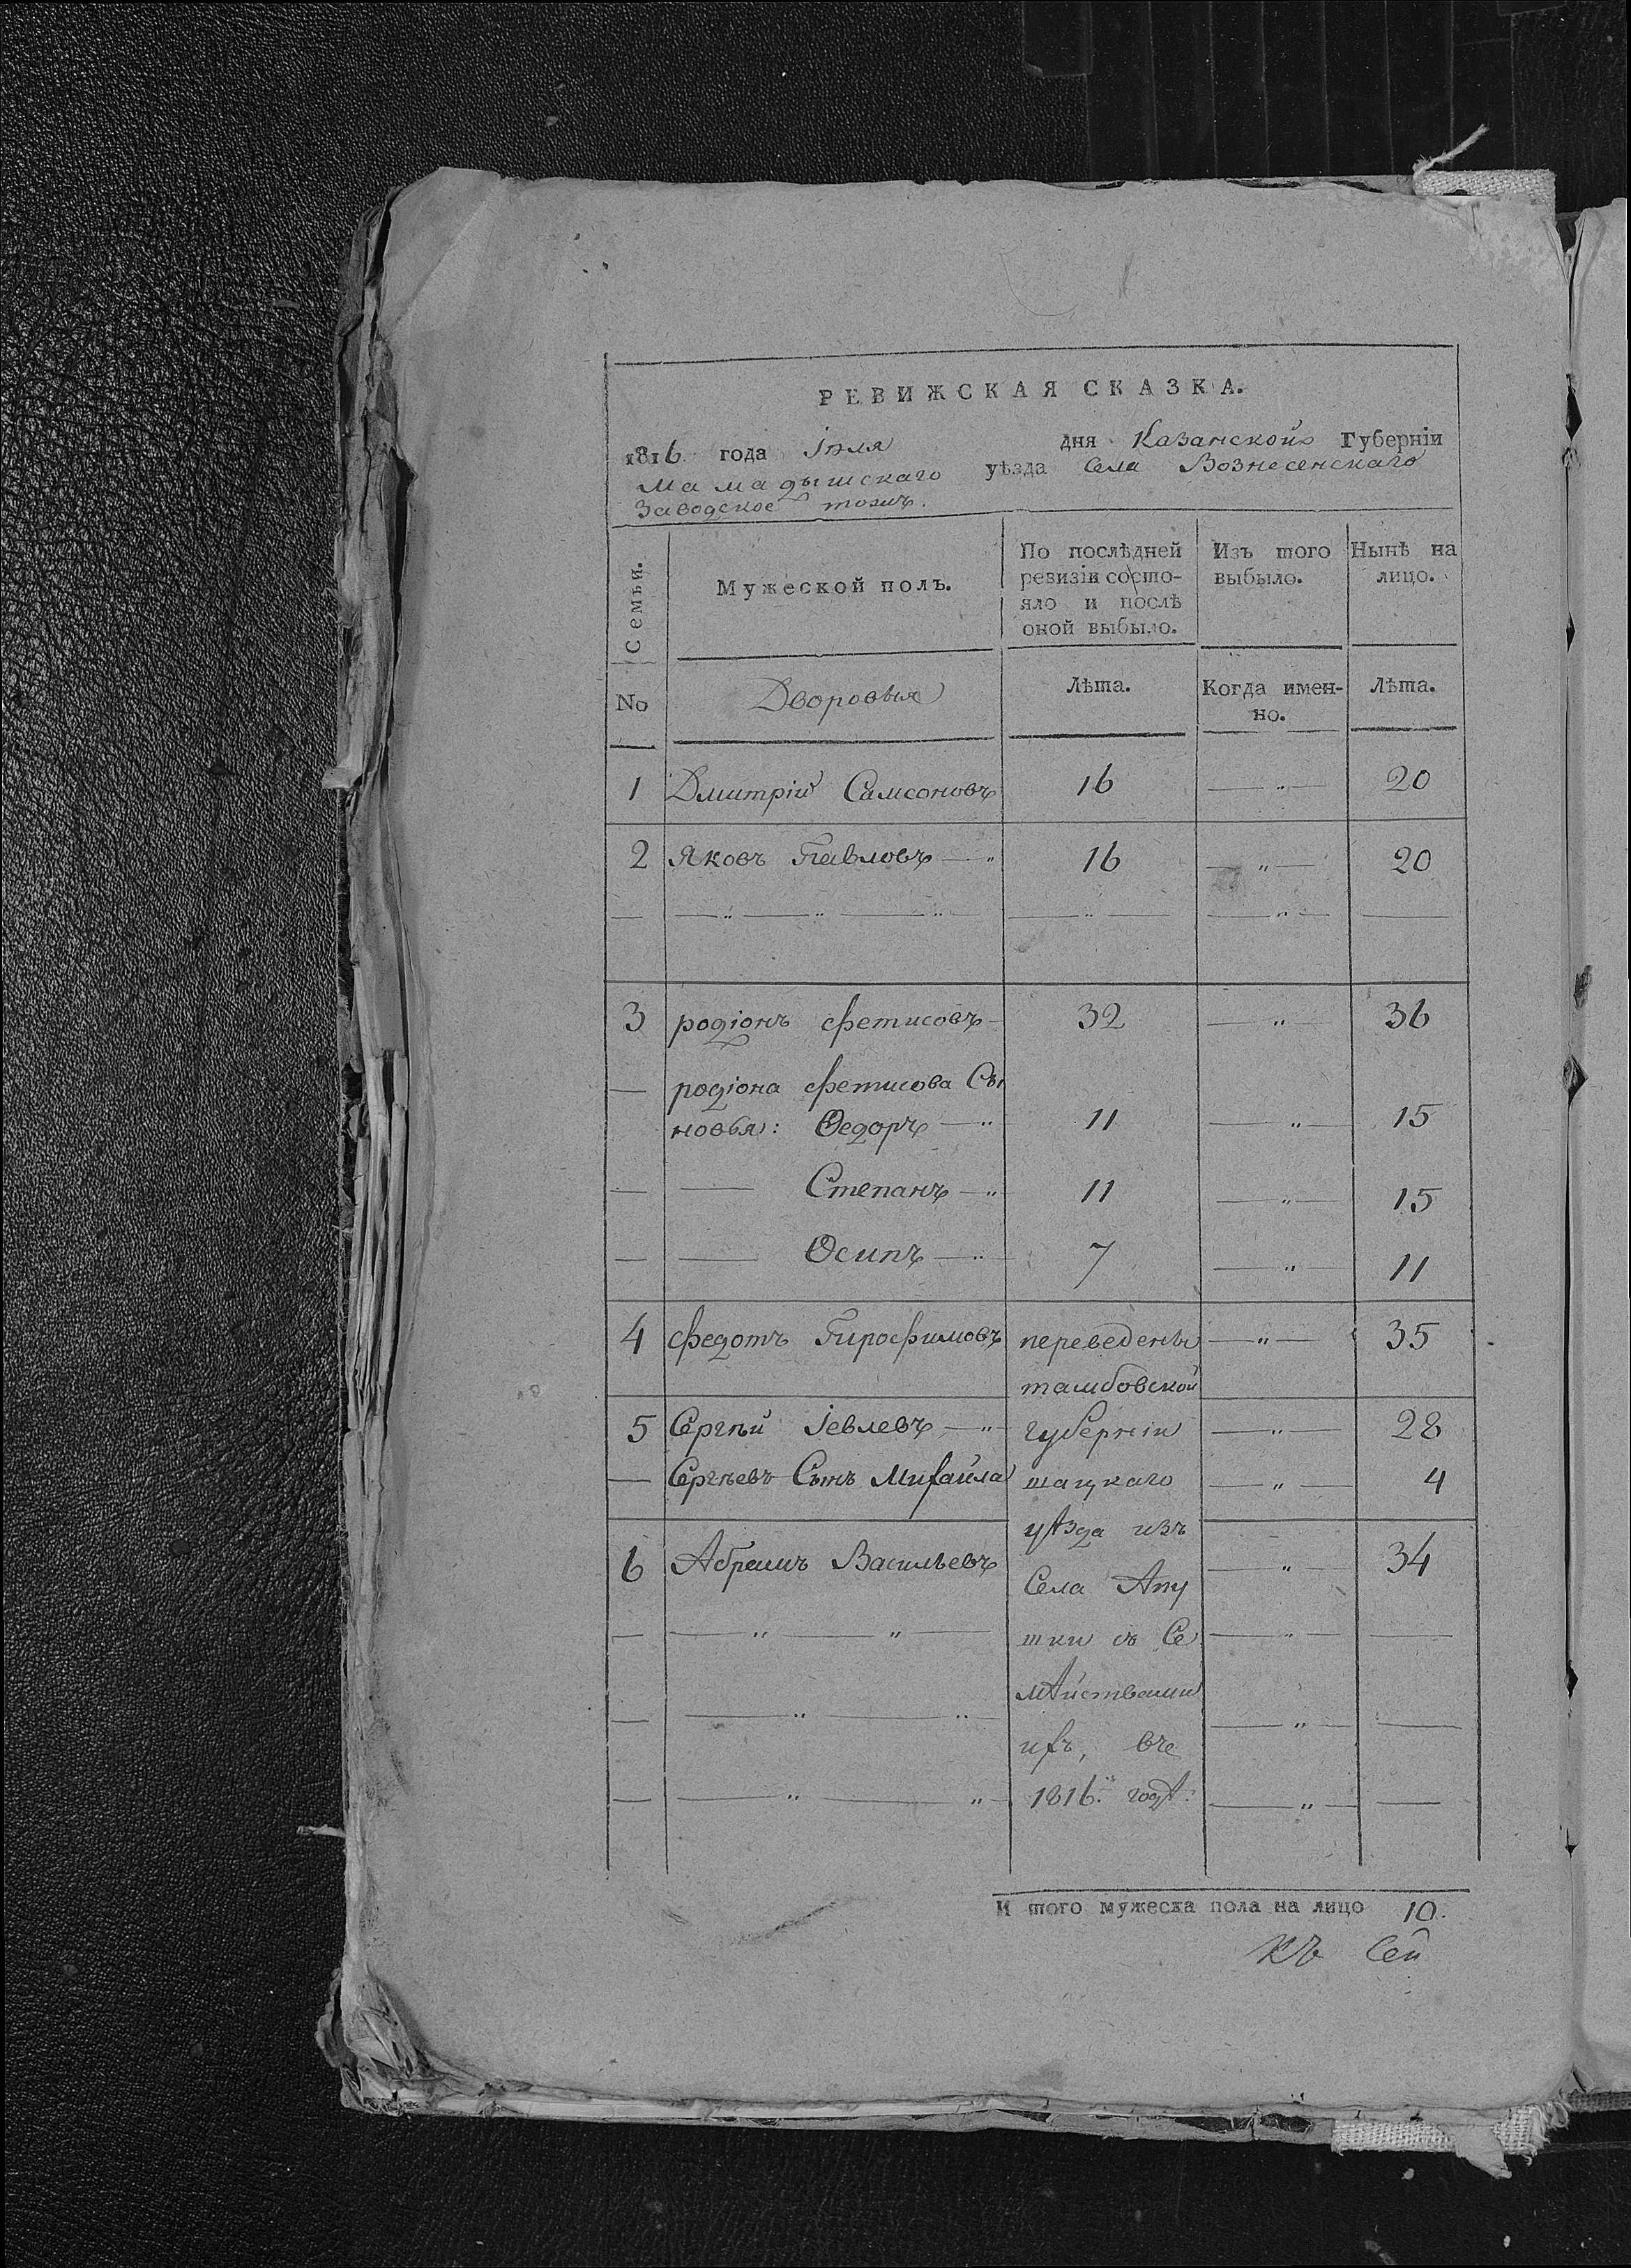 РЕВИЖСКАЯ СКАЗКА.
1816 года Іюля дня Казанской Губерніи
Мамадышскаго уѣзда Села Вознесенскаго
Заводское тожъ.
Семьи.
Мужеской полъ.
По послѣдней
ревизіи состо-
яло и послѣ
оной выбыло.
Изъ того
выбыло.
Нынѣ на
лицо.
No
Дворовыя
Лѣта.
Когда имен-
но.
Лѣта.
1 Дмитрій Самсоновъ 16 — „ — 20
2 Яковъ Павловъ — „ 16 — „ — 20
— — „ — „ — „ — — „ — — „ — —
3 родіонъ фетисовъ — 32 — „ — 36
— родіона фетисова Сы
новья: Ѳедоръ — „ 11 — „ — 15
— — Степанъ — „ 11 — „ — 15
— — Осипъ — „ — 7 — „ — 11
4 федотъ Пирофимовъ переведены — „ — 35
тамбовской
5 Сергѣй Іевлевъ — „ губерніи — „ — 28
— Сергѣевъ Сынъ Михайла шацкаго — „ — 4
уѣзда изъ
6 Абрамъ Васильевъ — „ — 34
Села Апу
— — „ — „ — шки съ Се — „ — —
мѣйствами
— — „ — „ — — „ — —
ихъ, въ
— — „ — „ — 1816. годѣ. — „ — —
И того мужеска пола на лицо 10.
Къ Сей